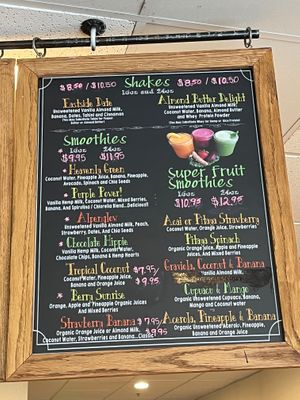 $8.50 / $10.50 Shakes $8.50 / $10.50
16oz and 24oz
Eastside Date
Unsweetened Vanilla Almond Milk,
Banana, Dates, Tahini and Cinnamon
Almond Butter Delight
Unsweetened Vanilla Almond Milk,
Coconut Water, Banana, Almond Butter
and Whey Protein Powder
Smoothies
16oz 24oz
$9.95 $11.95
Heavenly Green
Coconut Water, Pineapple Juice, Banana, Pineapple,
Avocado, Spinach and Chia Seeds
Purple Power!
Vanilla Hemp Milk, Coconut Water, Mixed Berries,
Banana, and Spirulina / Chlorella Blend...Delicious!!
Alpenglev
Unsweetened Vanilla Almond Milk, Peach,
Strawberry, Dates, And Chia Seeds
Chocolate Hippie
Vanilla Hemp Milk, Coconut Water,
Chocolate Chips, Banana & Hemp Hearts
Tropical Coconut $7.95
Coconut Water, Pineapple, Pineapple Juice,
Banana and Orange Juice $9.95
Berry Sunrise
Orange, Apple and Pineapple Organic Juices
And Mixed Berries
Strawberry Banana $7.95
Organic Orange Juice or Almond Milk, $9.95
Coconut Water, Strawberries and Banana...Classic!
Super Fruit
Smoothies
16oz 24oz
$10.95 $12.95
Acai or Pitaya Strawberry
Organic Orange Juice, Pineapple, Banana,
Strawberry, Dates And Coconut Water
Pitaya Spinach
Organic Orange, Apple and Pineapple
Juices, And Mixed Berries
Graviola, Coconut & Banana
Vanilla Almond Milk,
Cupuacu & Mango
Organic Unsweetened Cupuacu, Banana,
Mango and Coconut water
Acerola, Pineapple & Banana
Organic Unsweetened Acerola, Pineapple,
Banana and Orange Juice